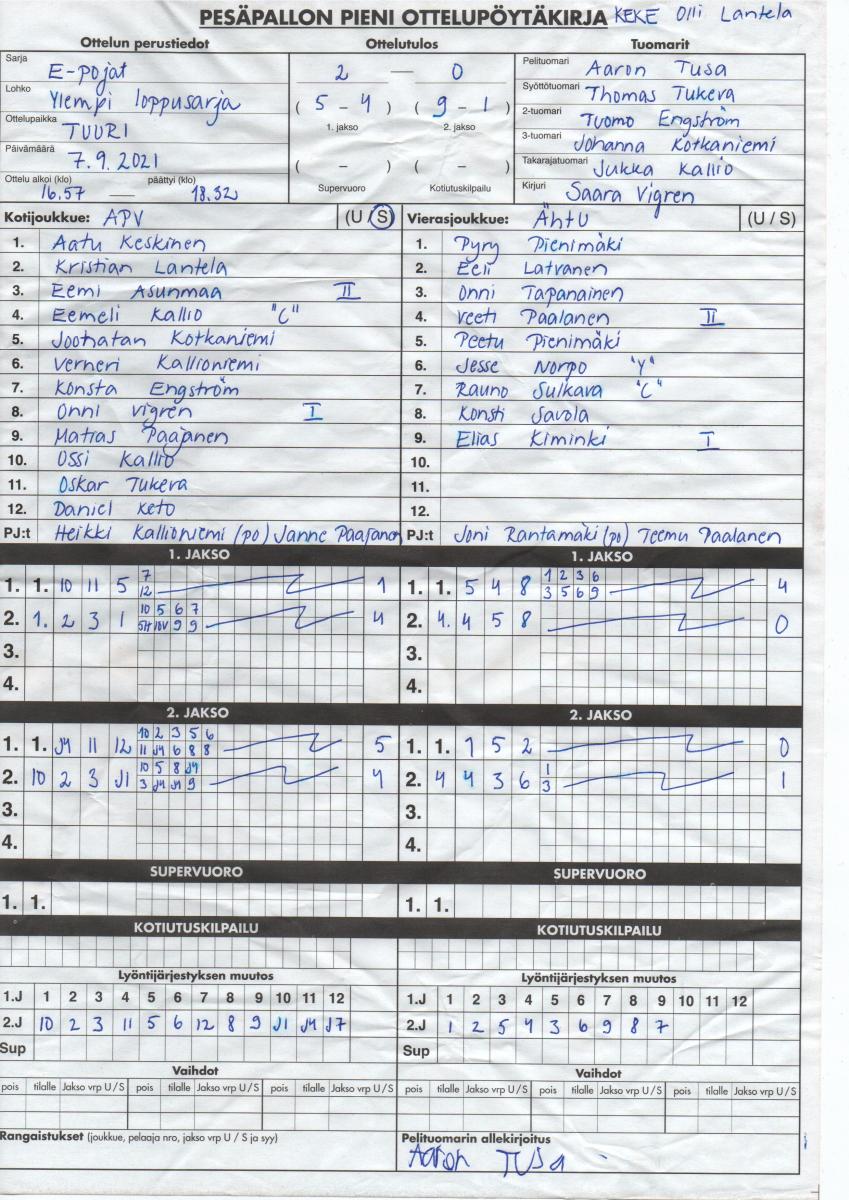 PESÄPALLON PIENI OTTELUPÖYTÄKIRJA KEKE Olli Lantela
Ottelun perustiedot Ottelutulos Tuomarit
Sarja E-pojat
Lohko Ylempi loppusarja
Ottelupaikka TUURI
Päivämäärä 7.9.2021
Ottelu alkoi (klo) päättyi (klo)
16.57 — 18.32
2 — 0
( 5 - 4 ) ( 9 - 1 )
1. jakso 2. jakso
( - ) ( - )
Supervuoro Kotiutuskilpailu
Pelituomari Aaron Tusa
Syöttötuomari Thomas Tukeva
2-tuomari Tuomo Engström
3-tuomari Johanna Kotkaniemi
Takarajatuomari Jukka Kallio
Kirjuri Saara Vigren
Kotijoukkue: APV (U / S)
1. Aatu Keskinen
2. Kristian Lantela
3. Eemi Asunmaa II
4. Eemeli Kallio "C"
5. Joonatan Kotkaniemi
6. Verneri Kallioniemi
7. Konsta Engström
8. Onni Vigren I
9. Matias Paajanen
10. Ossi Kallio
11. Oskar Tukeva
12. Daniel Keto
PJ:t Heikki Kallioniemi (po) Janne Paajanen
Vierasjoukkue: ÄhTU (U / S)
1. Pyry Pienimäki
2. Eeli Latvanen
3. Onni Tapanainen
4. Veeti Paalanen II
5. Peetu Pienimäki
6. Jesse Norpo "Y"
7. Rauno Sulkava "C"
8. Konsti Savola
9. Elias Kiminki I
10.
11.
12.
PJ:t Joni Rantamäki (po) Teemu Paalanen
1. JAKSO
1. 1. 10 11 5 7 1
12
2. 1. 2 3 1 10 5 6 7 4
9 9
3.
4.
1. JAKSO
1. 1. 5 4 8 1 2 3 6 4
3 5 6 9
2. 4. 4 5 8 0
3.
4.
2. JAKSO
1. 1. J4 11 12 10 2 3 5 6 5
11 J4 6 8 8
2. 10 2 3 J1 10 5 8 J4 4
3 J4 J4 9
3.
4.
2. JAKSO
1. 1. 1 5 2 0
2. 4 4 3 6 1 1
3
3.
4.
SUPERVUORO
1. 1.
SUPERVUORO
1. 1.
KOTIUTUSKILPAILU
KOTIUTUSKILPAILU
Lyöntijärjestyksen muutos
1.J 1 2 3 4 5 6 7 8 9 10 11 12
2.J 10 2 3 11 5 6 12 8 9 J1 J4 J7
Sup
Lyöntijärjestyksen muutos
1.J 1 2 3 4 5 6 7 8 9 10 11 12
2.J 1 2 5 4 3 6 9 8 7
Sup
Vaihdot
pois tilalle Jakso vrp U / S pois tilalle Jakso vrp U / S pois tilalle Jakso vrp U / S
Vaihdot
pois tilalle Jakso vrp U / S pois tilalle Jakso vrp U / S pois tilalle Jakso vrp U / S
Rangaistukset (joukkue, pelaaja nro, jakso vrp U / S ja syy)
Pelituomarin allekirjoitus
Aaron Tusa